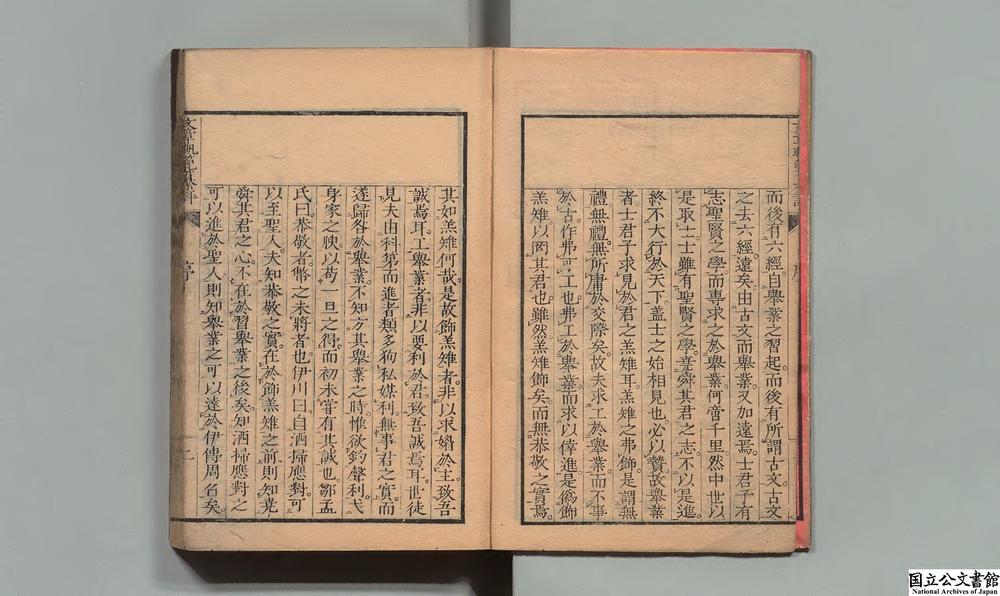 而後有六經自舉業之習起而後有所謂古文古文
之去六經遠矣由古文而舉業又加遠焉士君子有
志聖賢之學而專求之於舉業何啻千里然中世以
是取士士雖有聖賢之學堯舜其君之志不以是進
終不大行於天下蓋士之始相見也必以贄故舉業
者士君子求見於君之羔雉耳羔雉之弗飾是謂無
禮無禮無所庸於交際矣故夫求工於舉業而不事
於古作弗可工也弗工於舉業而求以倖進是僞飾
羔雉以罔其君也雖然羔雉飾矣而無恭敬之實焉
其如羔雉何哉是故飾羔雉者非以求媚於主致吾
誠焉耳工舉業者非以要利於君致吾誠焉耳世徒
見夫由科第而進者類多狥私媒利無事君之實而
遂歸咎於舉業不知方其舉業之時惟欲釣聲利弋
身家之腴以苟一旦之得而初未嘗有其誠也鄒孟
氏曰恭敬者幣之未將者也伊川曰自洒掃應對可
以至聖人夫知恭敬之實在於飾羔雉之前則知堯
舜其君之心不在於習舉業之後矣知洒掃應對之
可以進於聖人則知舉業之可以達於伊傅周召矣
序
二
国立公文書館
National Archives of Japan